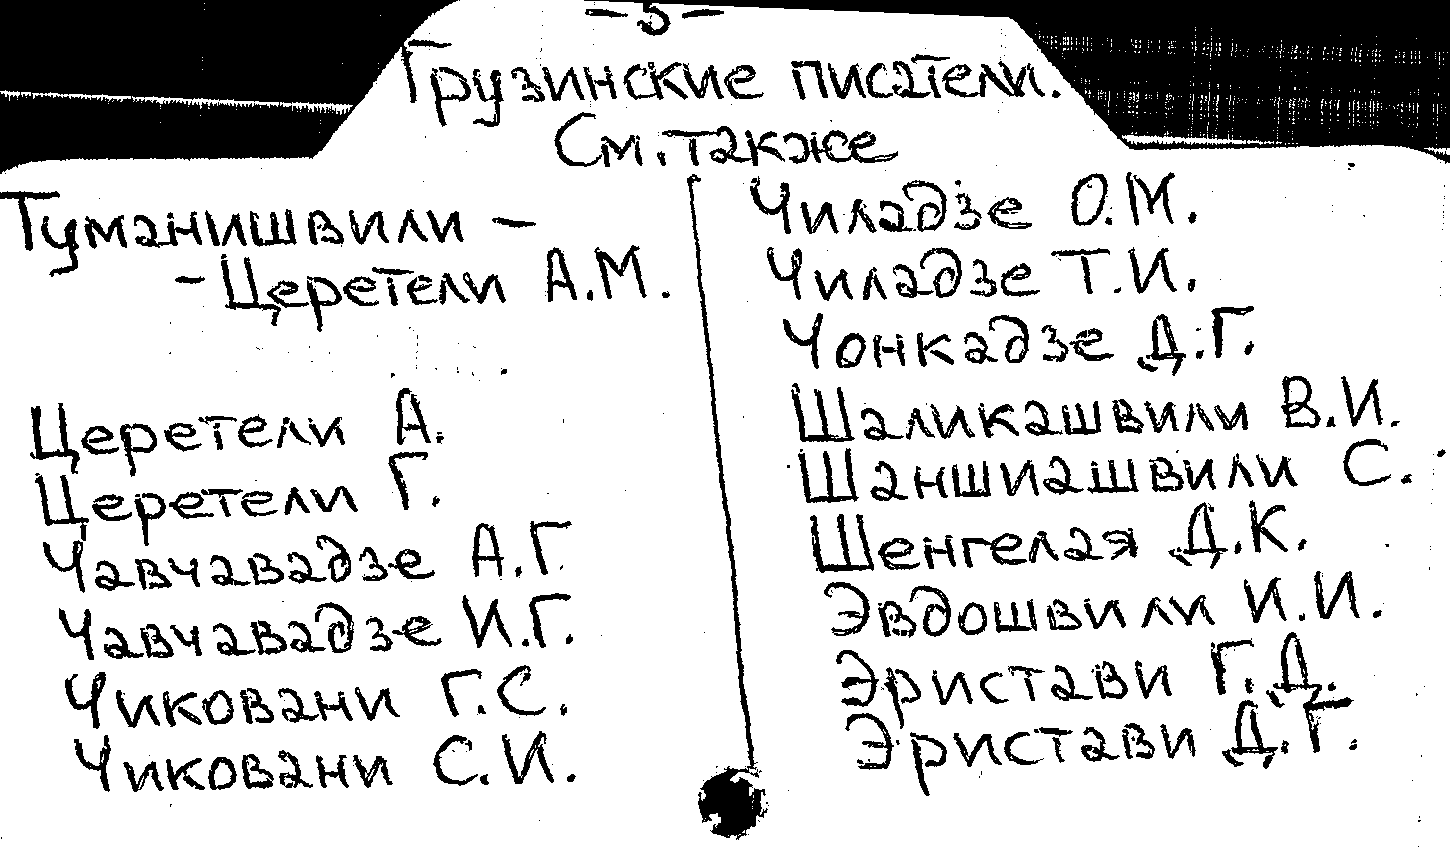 -5-
Грузинские писатели.
См. также
Туманишвили -
- Церетели А.М.
Церетели А.
Церетели Г.
Чавчавадзе А.Г.
Чавчавадзе И.Г.
Чиковани Г.С.
Чиковани С.И.
Чиладзе О.М.
Чиладзе Т.И.
Чонкадзе Д.Г.
Шаликашвили В.И.
Шаншиашвили С.
Шенгелая Д.К.
Эвдошвили И.И.
Эристави Г.Д.
Эристави Д.Г.